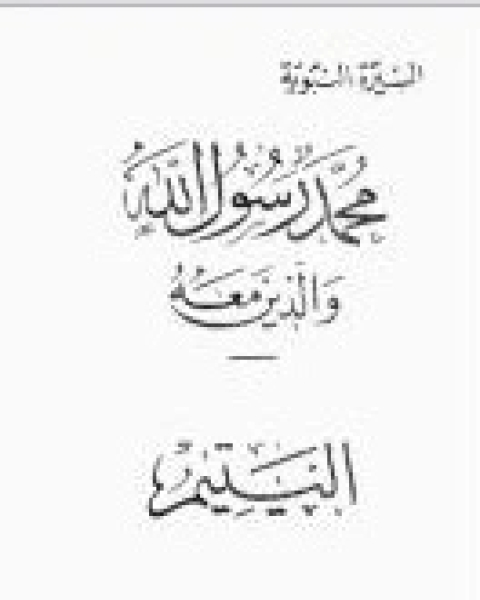 السيرة النبوية
محمد رسول الله
والذين معه
اليتيم